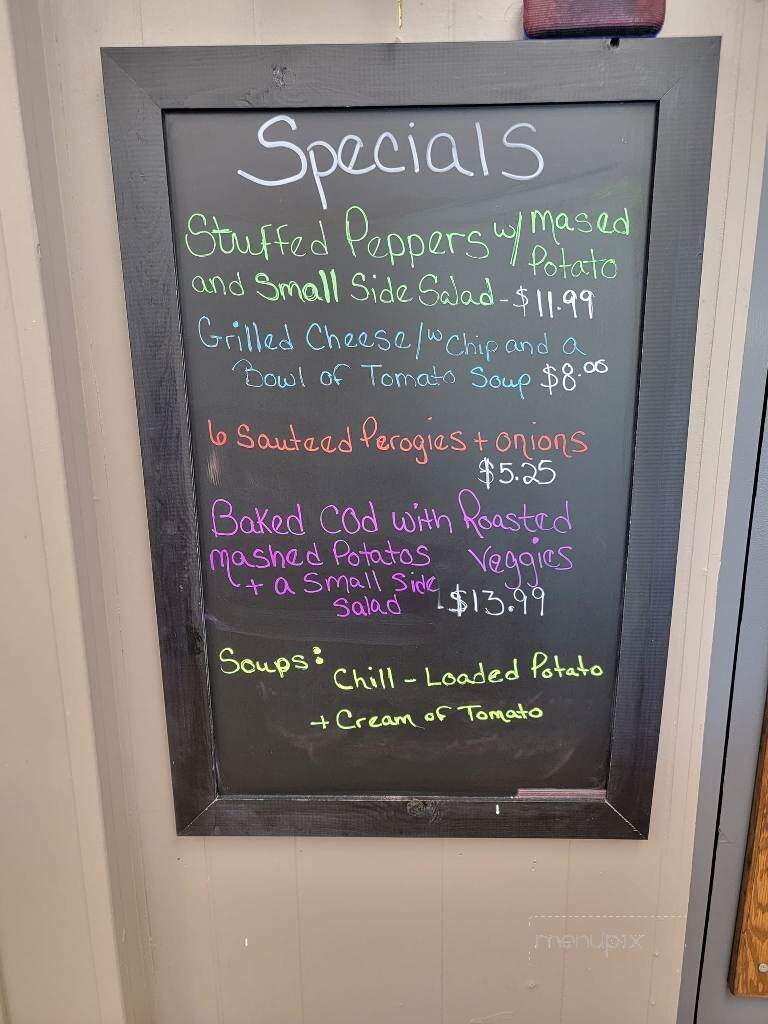 Specials
Stuffed Peppers w/ Mased Potato
and Small Side Salad - $11.99
Grilled Cheese /w Chip and a
Bowl of Tomato Soup $8.00
6 Sauteed Perogies + onions
$5.25
Baked Cod with Roasted
mashed Potatos Veggies
+ a Small Side
Salad - $13.99
Soups: Chill - Loaded Potato
+ Cream of Tomato
menupix